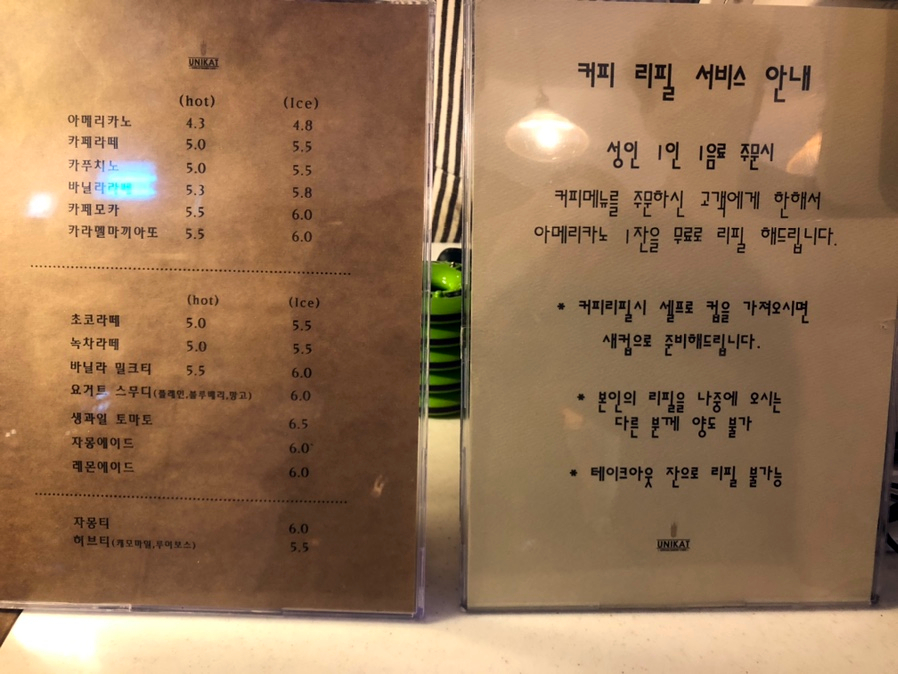 UNIKAT
(hot) (Ice)
아메리카노 4.3 4.8
카페라떼 5.0 5.5
카푸치노 5.0 5.5
바닐라라떼 5.3 5.8
카페모카 5.5 6.0
카라멜마끼아또 5.5 6.0
(hot) (Ice)
초코라떼 5.0 5.5
녹차라떼 5.0 5.5
바닐라 밀크티 5.5 6.0
요거트 스무디(플레인,블루베리,망고) 6.0
생과일 토마토 6.5
자몽에이드 6.0
레몬에이드 6.0
자몽티 6.0
허브티(캐모마일,루이보스) 5.5
커피 리필 서비스 안내
성인 1인 1음료 주문시
커피메뉴를 주문하신 고객에게 한해서
아메리카노 1잔을 무료로 리필 해드립니다.
* 커피리필시 셀프로 컵을 가져오시면
새컵으로 준비해드립니다.
* 본인의 리필을 나중에 오시는
다른 분께 양도 불가
* 테이크아웃 잔으로 리필 불가능
UNIKAT